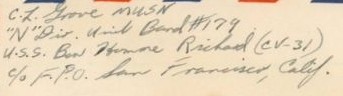 C.L. Grove MUSN
"N" Div. Unit Band #179
U.S.S. Bon Homme Richard (CV-31)
c/o F.P.O. San Francisco, Calif.